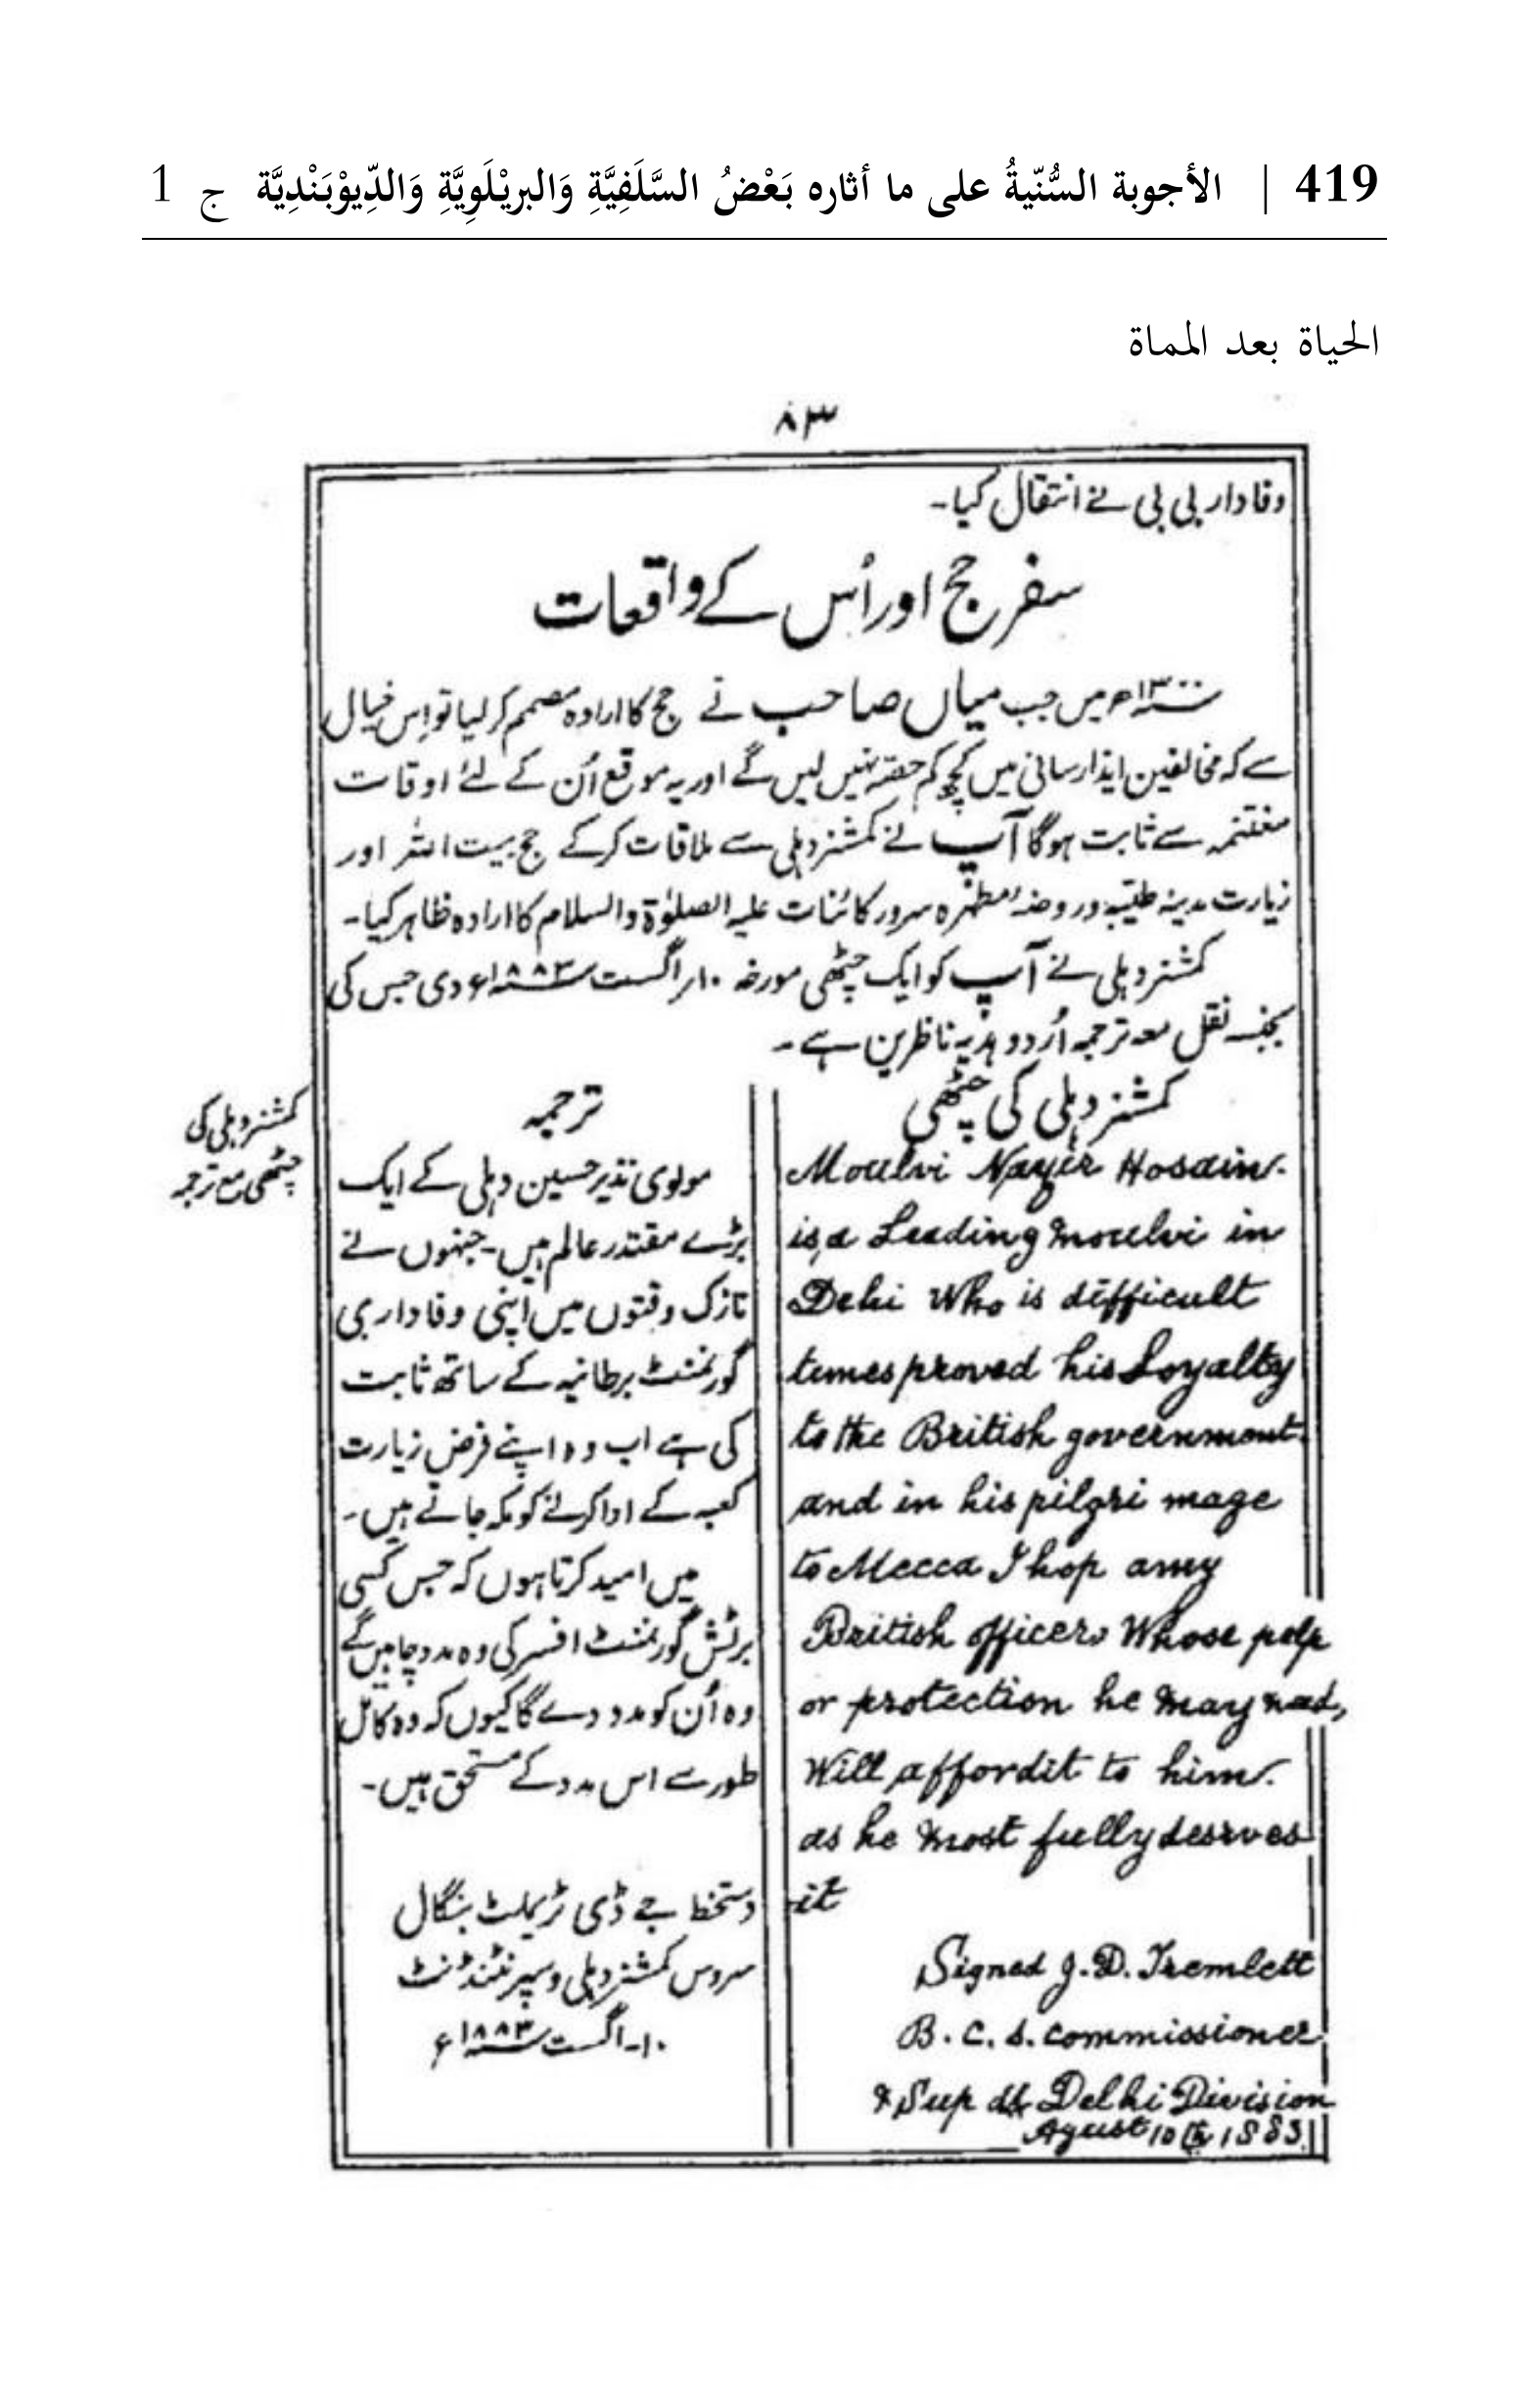 419 | الأجوبة السُّنّيةُ على ما أثاره بَعْضُ السَّلَفِيَّةِ وَالبريْلَوِيَّةِ وَالدِّيوْبَنْدِيَّة ج 1
الحياة بعد المماة
۸۳
وفادار بی بی نے انتقال کیا۔
سفر حج اور اُس کے واقعات
۱۳۰۰ھ میں جب میاں صاحب نے حج کا ارادہ مصمم کر لیا تو اِس خیال
سے کہ مخالفین ایذا رسانی میں کچھ کم حصّہ نہیں لیں گے اور یہ موقع اُن کے لئے اوقات
مغتنمہ سے ثابت ہوگا آپ نے کمشنر دہلی سے ملاقات کرکے حج بیت اللہ اور
زیارت مدینہ طیّبہ و روضۂ مطہرہ سرور کائنات علیہ الصلوٰۃ والسلام کا ارادہ ظاہر کیا۔
کمشنر دہلی نے آپ کو ایک چٹھی مورخہ ۱۰ر اگست ۱۸۸۳ء دی جس کی
بجنسہ نقل معہ ترجمہ اُردو ہدیہ ناظرین ہے۔
کمشنر دہلی کی چٹھی
Moulvi Nazir Hosain.
is a Leading moulvi in
Dehi Who is difficult
times proved his Loyalty
to the British government.
and in his pilgri mage
to Mecca I hop any
British officer Whose pelp
or protection he may need,
Will affordit to him.
as he most fully desrves
it
Signed J. D. Tremlett
B. C. S. commissioner
& Sup dt Delhi Division
Agust 10 th 1883
ترجمہ
مولوی نذیر حسین دہلی کے ایک
بڑے مقتدر عالم ہیں۔ جنہوں نے
نازک وقتوں میں اپنی وفاداری
گورنمنٹ برطانیہ کے ساتھ ثابت
کی ہے اب وہ اپنے فرض زیارت
کعبہ کے ادا کرنے کو مکہ جاتے ہیں۔
میں امید کرتا ہوں کہ جس کسی
برٹش گورنمنٹ افسر کی وہ مدد چاہیں گے
وہ اُن کو مدد دے گا کیوں کہ وہ کامل
طور سے اس مدد کے مستحق ہیں۔
دستخط جے ڈی ٹریملٹ بنگال
سروس کمشنر دہلی و سپرنٹنڈنٹ
۱۰۔اگست ۱۸۸۳ء
کمشنر دہلی کی
چٹھی مع ترجمہ